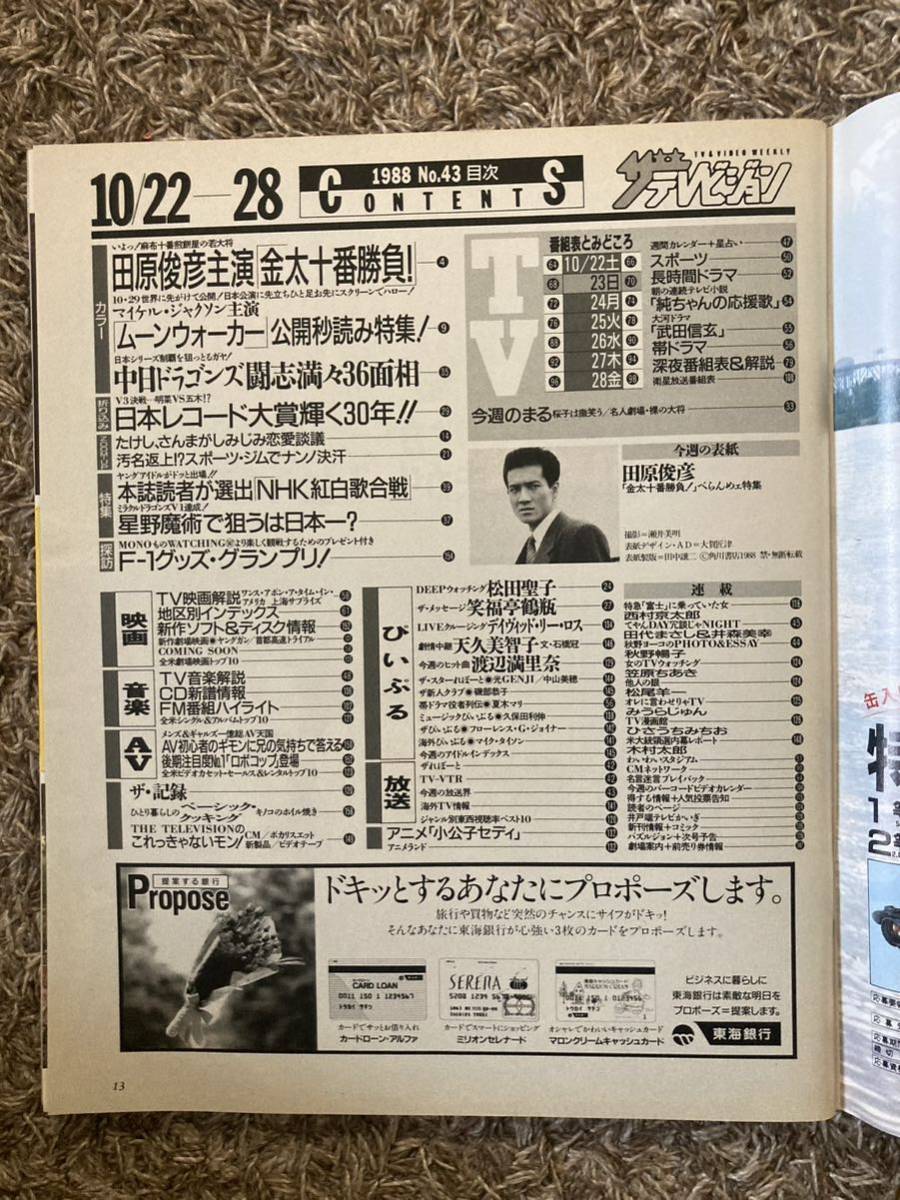 10/22—28
1988 No.43 目次
CONTENTS
TV & VIDEO WEEKLY
ザ・テレビジョン
カラー
いよっ!麻布十番煎餅屋の若大将
田原俊彦主演「金太十番勝負!」 4
10・29世界に先がけて公開!日本公演に先立ちひと足お先にスクリーンでハロー!
マイケル・ジャクソン主演
「ムーンウォーカー」公開秒読み特集! 9
日本シリーズ制覇を狙っとるガヤ!
中日ドラゴンズ闘志満々36面相
折り込み
V3決戦—明菜VS.五木!?
日本レコード大賞輝く30年!! 29
たけし、さんまがしみじみ恋愛談議 14
汚名返上!?スポーツ・ジムでナンノ決汗 21
特集
ヤングアイドルがドッと出場!!
本誌読者が選出「NHK紅白歌合戦」 39
ミラクルドラゴンズV1達成!
星野魔術で狙うは日本一? 37
探訪
MONOものWATCHING㊙より楽しく観戦するためのプレゼント付き
F-1グッズ・グランプリ!
TV
番組表とみどころ
64 10/22土 66
68 23日 70
72 24月 74
76 25火 78
88 26水 90
92 27木 94
96 28金 98
週間カレンダー+星占い 47
スポーツ 50
長時間ドラマ 52
朝の連続テレビ小説
「純ちゃんの応援歌」 54
大河ドラマ
「武田信玄」 55
帯ドラマ 56
深夜番組表&解説 79
衛星放送番組表
今週のまる 桜子は微笑う/名人劇場・裸の大将 33
今週の表紙
田原俊彦
「金太十番勝負!」べらんめェ特集
撮影=瀬井美明
表紙デザイン・AD=大賀匠津
表紙製版=田中謙二 ©角川書店1988 禁・無断転載
映画
TV映画解説 ワンス・アポン・ア・タイム・イン・アメリカ 上海サプライズ 58
地区別インデックス 61
新作ソフト&ディスク情報
新作劇場映画=ヤングガン/首都高速トライアル
COMING SOON
全米劇場映画トップ10
音楽
TV音楽解説 48
CD新譜情報
FM番組ハイライト
全米シングル&アルバムトップ10
AV
メンズ&ギャルズ一億総AV天国
AV初心者のギモンに兄の気持ちで答える
後期注目度No.1「ロボコップ」登場
全米ビデオカセット・セールス&レンタルトップ10
ザ・記録
ひとり暮らしの ベーシック・クッキング キノコのホイル焼き
THE TELEVISIONの
これっきゃないモン! CM/ポカリスエット 新製品/ビデオテープ
ぴいぷる
DEEPウォッチング 松田聖子 24
ザ・メッセージ 笑福亭鶴瓶 27
LIVEクルージング デイヴィッド・リー・ロス
劇情中継 天久美智子 文・石橋冠
今週のヒット曲 渡辺満里奈
ザ・スターれぽーと●光GENJI/中山美穂
ザ新人クラブ●磯部恭子
帯ドラマ役者列伝●夏木マリ
ミュージックぴいぷる●久保田利伸
ザぴいぷる●フローレンス・G・ジョイナー
海外ぴいぷる●マイク・タイソン
今週のアイドルインデックス
放送
ザれぽーと 42
TV-VTR 42
今週の放送界 43
海外TV情報
ジャンル別東西視聴率ベスト10
アニメ「小公子セディ」
アニメランド
連載
特急「富士」に乗っていた女
西村京太郎
てやんDAY冗談じゃNIGHT
田代まさし&井森美幸
秋野ヨーコのPHOTO&ESSAY
秋野暢子
女のTVウォッチング
笠原ちあき
他人の眼
松尾羊一
オレに言わせりゃTV
みうらじゅん
TV漫画館
ひさうちみちお
米大統領選内幕レポート
木村太郎
わいわいスタジアム
CMネットワーク
名言迷言プレイバック
今週のバーコードビデオカレンダー
得する情報+人気投票告知
読者のページ
井戸端テレビかいぎ
新刊情報+コミック
パズルジョン+次号予告
劇場案内+前売り券情報
提案する銀行
Propose
ドキッとするあなたにプロポーズします。
旅行や買物など突然のチャンスにサイフがドキッ!
そんなあなたに東海銀行が心強い3枚のカードをプロポーズします。
CARD LOAN
0011 150 1 1234567
トウカイ サチコ
カードでサッとお借り入れ
カードローン・アルファ
SERENA
カードでスマートにショッピング
ミリオンセレナード
0011 150 1 0123456
トウカイ サチコ
オシャレでかわいいキャッシュカード
マロンクリームキャッシュカード
ビジネスに暮らしに
東海銀行は素敵な明日を
プロポーズ=提案します。
東海銀行
13
缶入り
特
1等
2等